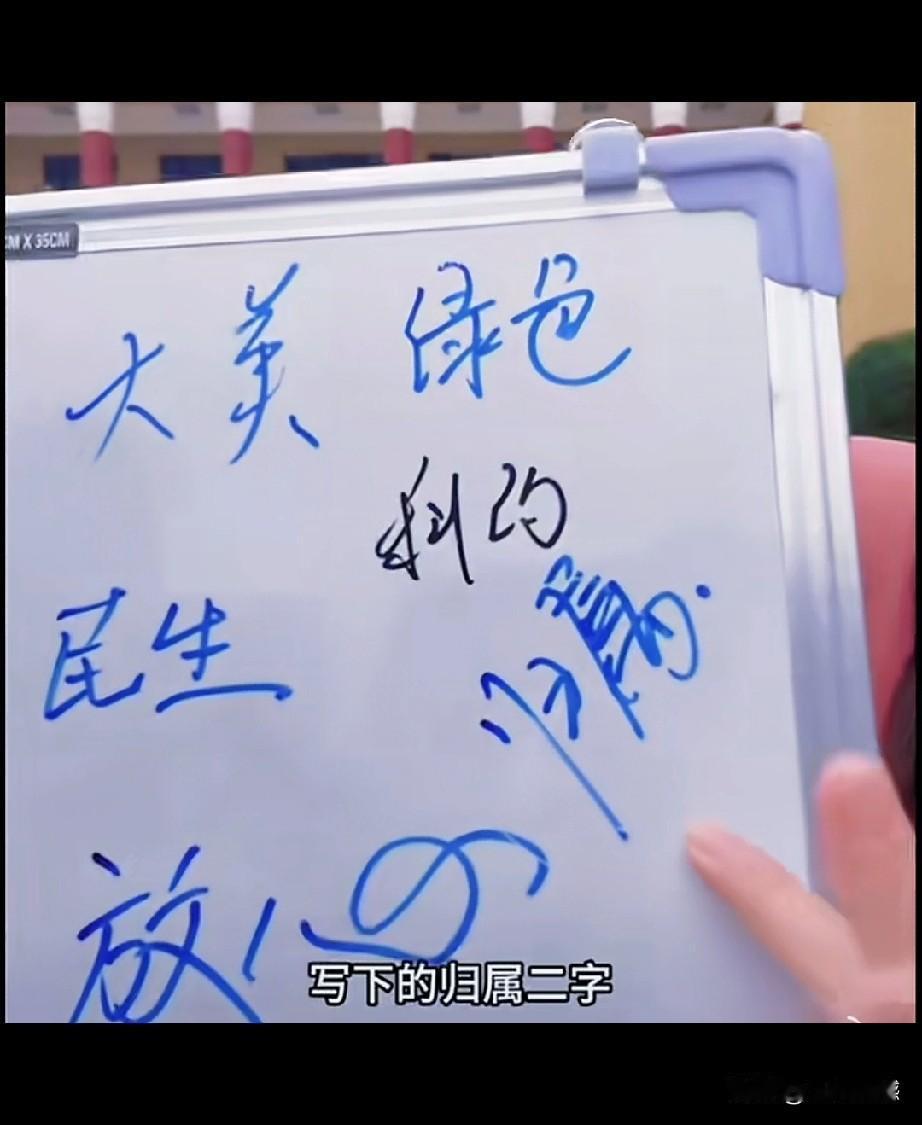 CM X 35CM
大美 绿色
科的
民生
归属
放心
写下的归属二字